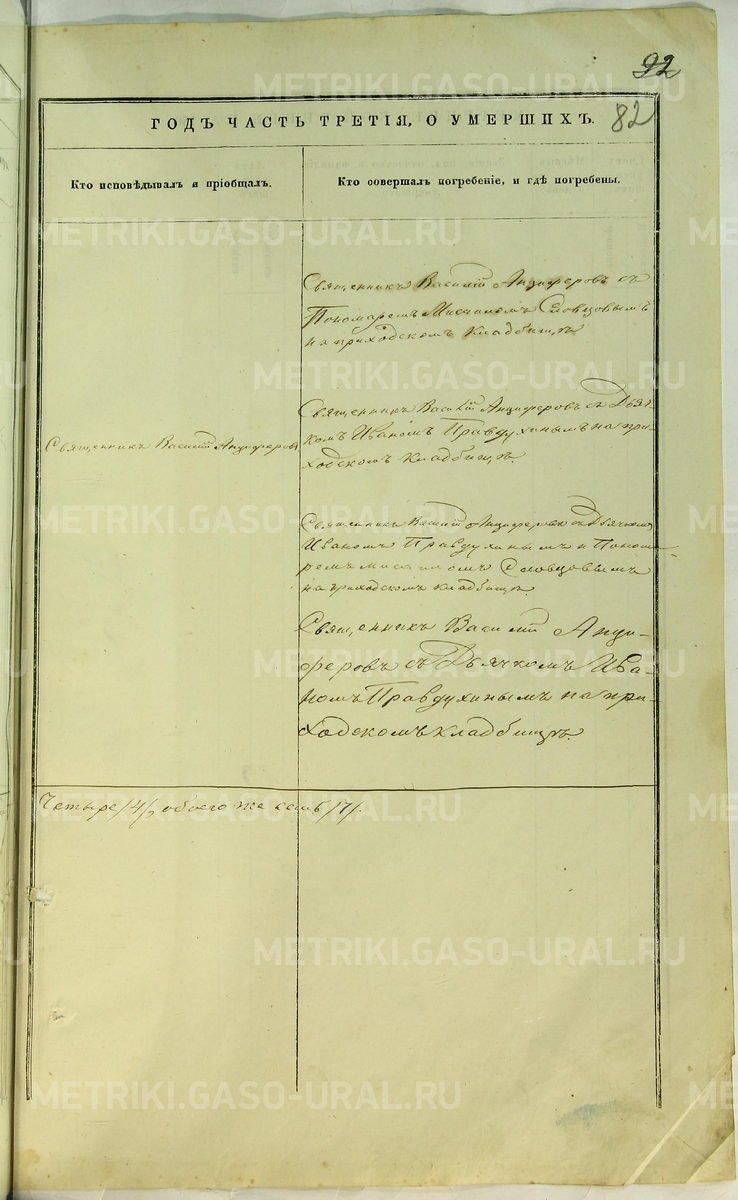 92
82
ГОДЪ ЧАСТЬ ТРЕТІЯ, О УМЕРШИХЪ.
Кто исповѣдывалъ и пріобщалъ.
Кто совершалъ погребеніе, и гдѣ погребены.
Священникъ Василій Анциферовъ съ
Пономаремъ Мисаиломъ Словцовымъ
на приходскомъ кладбищѣ.
Священникъ Василій Анциферовъ
Священникъ Василій Анциферовъ съ Дьяч-
комъ Иваномъ Правдухинымъ на при-
ходскомъ кладбищѣ.
Священникъ Василій Анциферовъ съ Дьячкомъ
Иваномъ Правдухинымъ и Понома-
ремъ Мисаиломъ Словцовымъ
на приходскомъ кладбищѣ.
Священникъ Василій Анци-
феровъ съ Дьячкомъ Ива-
номъ Правдухинымъ на при-
ходскомъ кладбищѣ.
Четыре /4/, обоего же семь /7/.
METRIKI.GASO-URAL.RU